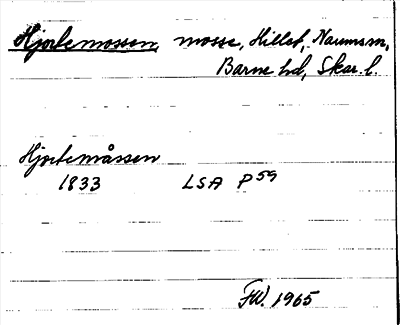 Hjortemossen, mosse, Hillet, Naumsm,
Barne hd, Skar. l.
Hjortemåssen
1833 LSA P59
FW. 1965